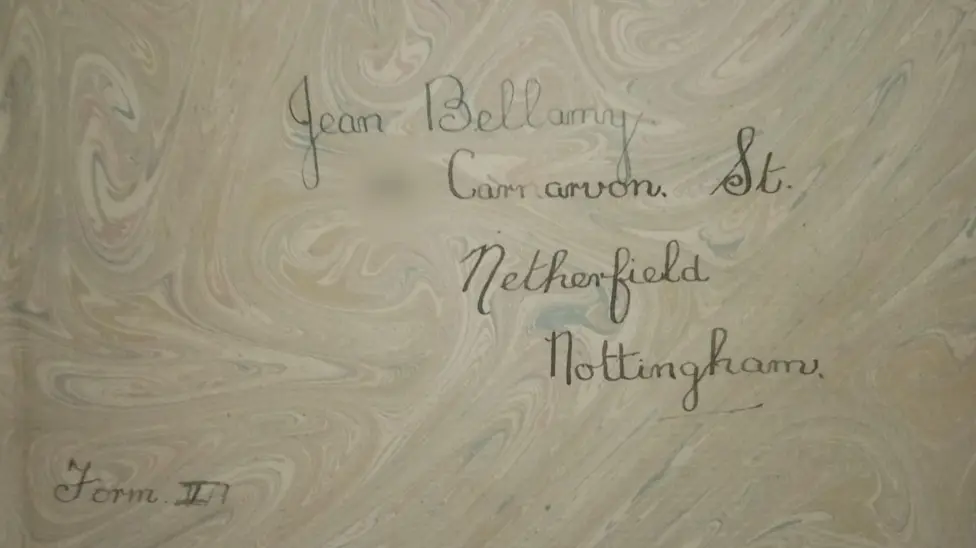 Jean Bellamy.
Carnarvon. St.
Netherfield
Nottingham.
Form.